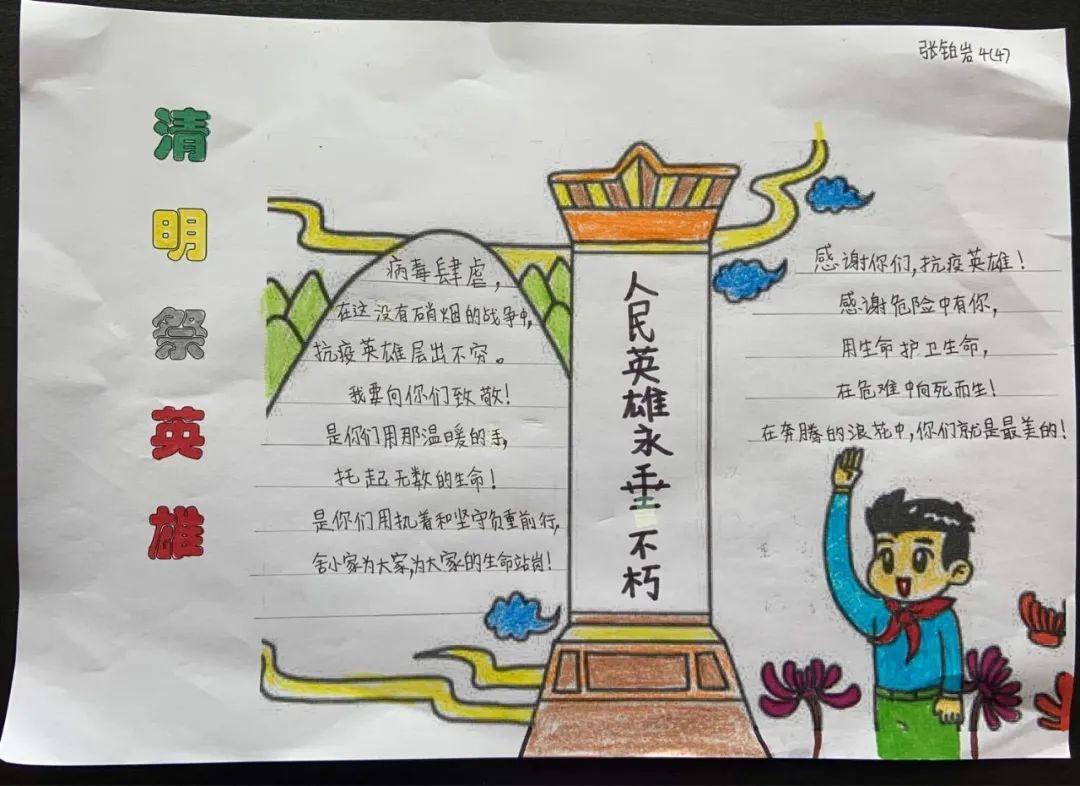 张铂岩 4(4)
清明祭英雄
病毒肆虐，
在这没有硝烟的战争中，
抗疫英雄层出不穷。
我要向你们致敬！
是你们用那温暖的手，
托起无数的生命！
是你们用执着和坚守负重前行，
舍小家为大家，为大家的生命站岗！
人民英雄永垂不朽
感谢你们，抗疫英雄！
感谢危险中有你，
用生命护卫生命，
在危难中向死而生！
在奔腾的浪花中，你们就是最美的！